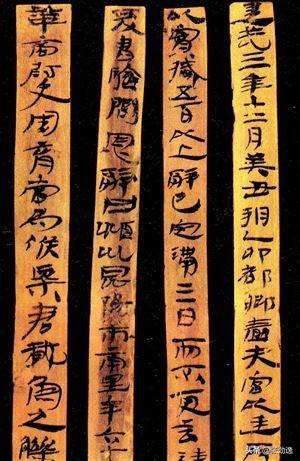 建武三年十二月癸丑朔乙卯都鄉嗇夫宮以廷
以實臧五百以上辭已定滿三日而不更言請
爰書驗問恩辭曰潁川昆陽市南里年六十
華商尉史周育當為候粟君載魚之觻
头条